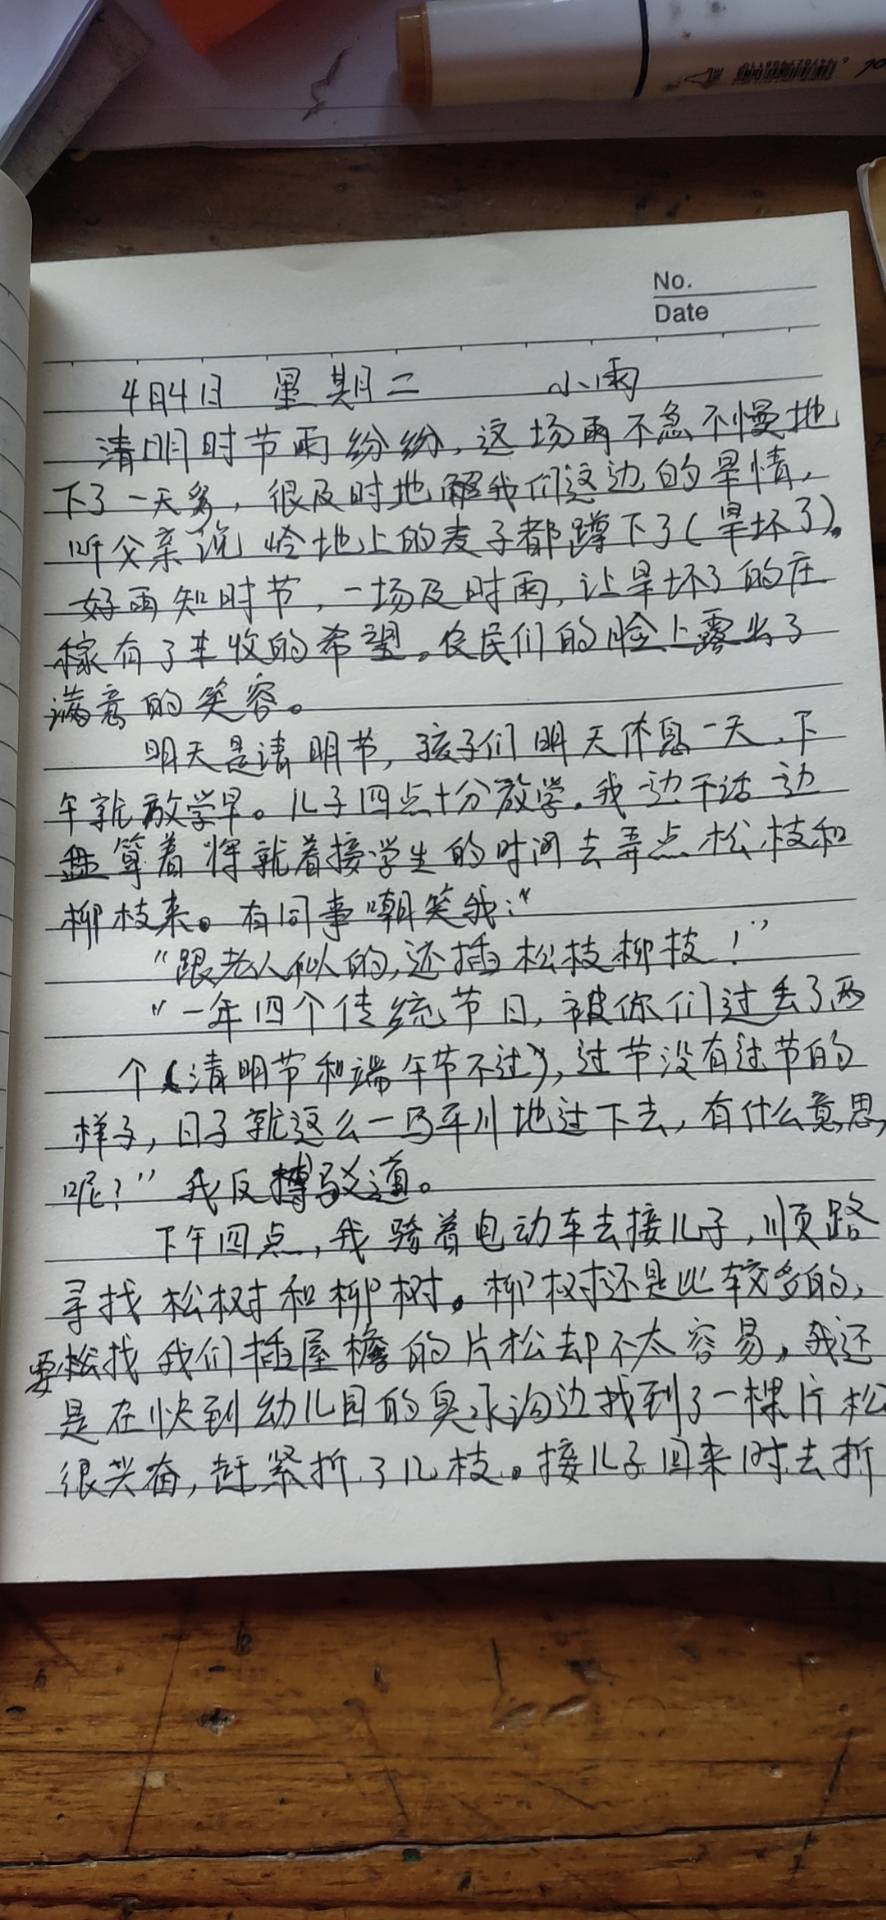 No.
Date
4月4日 星期二 小雨
清明时节雨纷纷，这场雨不急不慢地
下了一天多，很及时地解我们这边的旱情，
听父亲说岭地上的麦子都蹲下了(旱坏了)。
好雨知时节，一场及时雨，让旱坏了的庄
稼有了丰收的希望。农民们的脸上露出了
满意的笑容。
明天是清明节，孩子们明天休息一天，下
午就放学早。儿子四点十分放学。我一边干活一边
盘算着将就着接学生的时间去弄点松枝和
柳枝来。有同事嘲笑我：“
“跟老人似的，还插松枝柳枝！”
“一年四个传统节日，被你们过丢了两
个(清明节和端午节不过)，过节没有过节的
样子，日子就这么一马平川地过下去，有什么意思
呢？”我反驳道。
下午四点，我骑着电动车去接儿子，顺路
寻找松树和柳树。柳树还是比较多的，
要找我们插屋檐的片松却不太容易，我还
是在快到幼儿园的臭水沟边找到了一棵片松
很兴奋，赶紧折了几枝。接儿子回来时去折